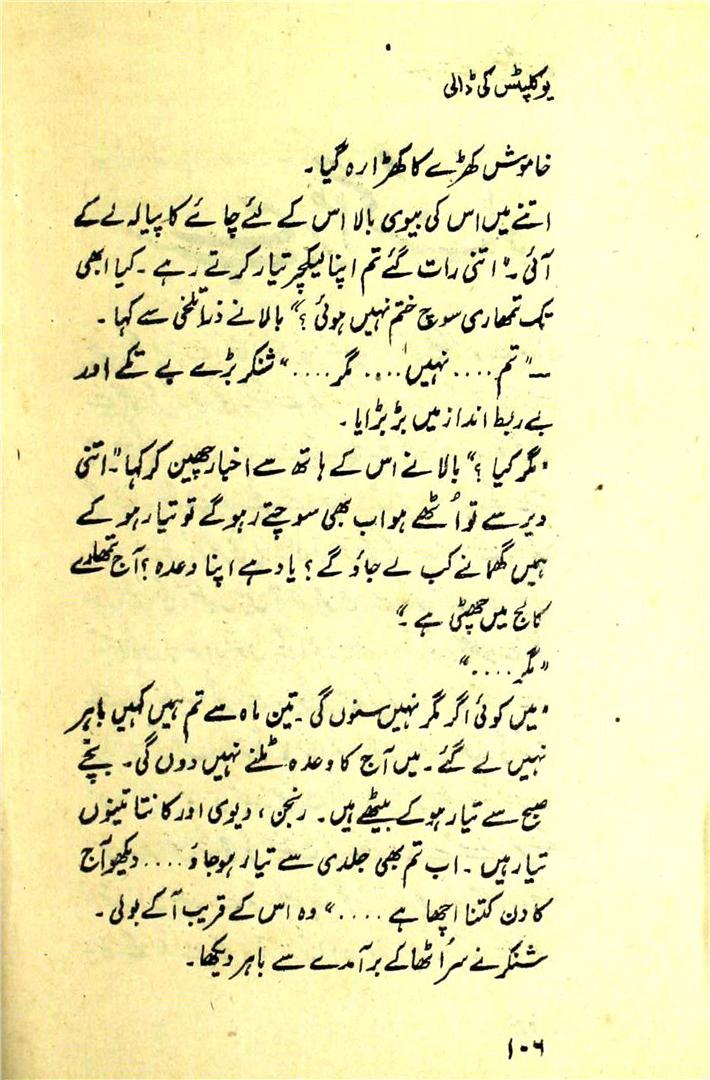 یوکلپٹس کی ڈالی
خاموش کھڑے کا کھڑا رہ گیا۔
اتنے میں اس کی بیوی بالا اس کے لئے چائے کا پیالہ لے کے
آئی۔ "اتنی رات گئے تم اپنا لیکچر تیار کرتے رہے۔ کیا ابھی
تک تمھاری سوچ ختم نہیں ہوئی؟" بالا نے ذرا تلخی سے کہا۔
—"تم.... نہیں.... مگر...." شنکر بڑے بے تکے اور
بے ربط انداز میں بڑبڑایا۔
"مگر کیا؟" بالا نے اس کے ہاتھ سے اخبار چھین کر کہا "اتنی
دیر سے تو اُٹھے ہو اب بھی سوچتے رہو گے تو تیار ہو کے
ہمیں گھمانے کب لے جاؤ گے؟ یاد ہے اپنا وعدہ؟ آج تمھارے
کالج میں چھٹی ہے۔"
"مگر...."
"میں کوئی اگر مگر نہیں سنوں گی۔ تین ماہ سے تم ہمیں کہیں باہر
نہیں لے گئے۔ میں آج کا وعدہ ٹلنے نہیں دوں گی۔ بچّے
صبح سے تیار ہو کے بیٹھے ہیں۔ رنجن، دیوی اور کانتا تینوں
تیار ہیں۔ اب تم بھی جلدی سے تیار ہو جاؤ.... دیکھو آج
کا دن کتنا اچھا ہے...." وہ اس کے قریب آ کے بولی۔
شنکر نے سر اُٹھا کے برآمدے سے باہر دیکھا۔
۱۰۶